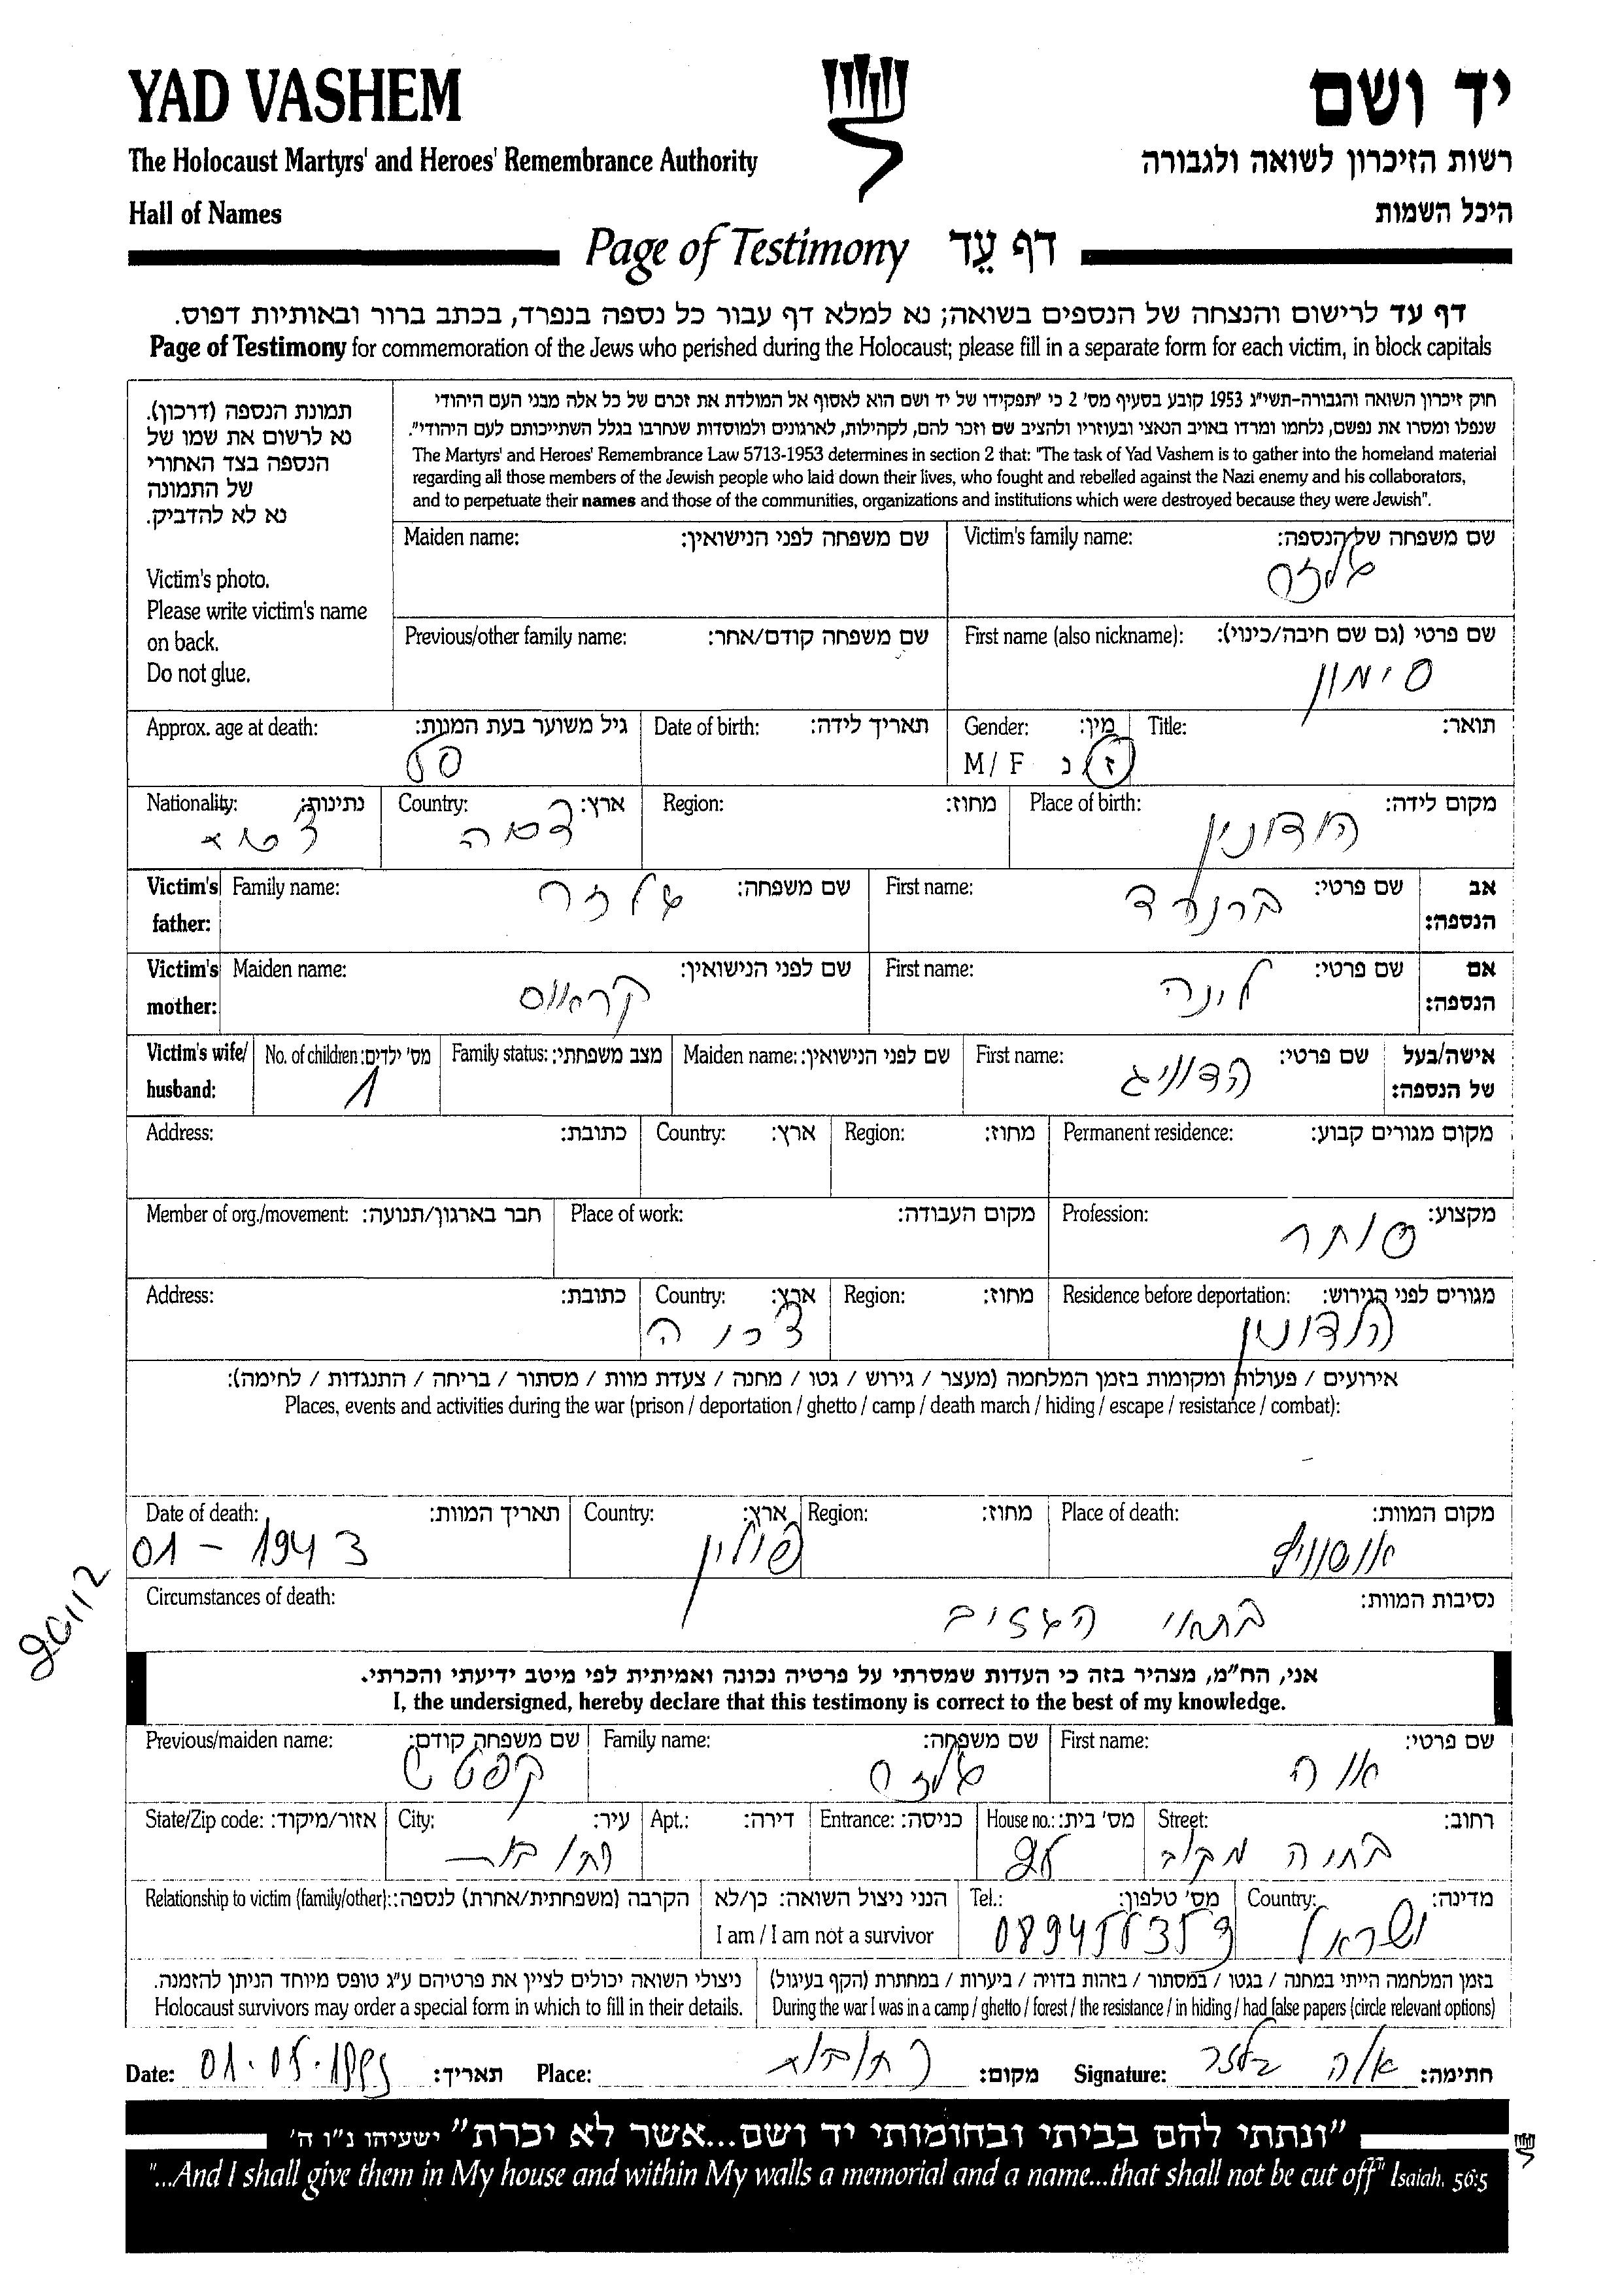 YAD VASHEM
יד ושם
The Holocaust Martyrs' and Heroes' Remembrance Authority
רשות הזיכרון לשואה ולגבורה
Hall of Names
היכל השמות
Page of Testimony דף עֵד
דף עד לרישום והנצחה של הנספים בשואה; נא למלא דף עבור כל נספה בנפרד, בכתב ברור ובאותיות דפוס.
Page of Testimony for commemoration of the Jews who perished during the Holocaust; please fill in a separate form for each victim, in block capitals
תמונת הנספה (דרכון).
נא לרשום את שמו של
הנספה בצד האחורי
של התמונה
נא לא להדביק.
Victim's photo.
Please write victim's name
on back.
Do not glue.
חוק זיכרון השואה והגבורה-תשי"ג 1953 קובע בסעיף מס' 2 כי "תפקידו של יד ושם הוא לאסוף אל המולדת את זכרם של כל אלה מבני העם היהודי
שנפלו ומסרו את נפשם, נלחמו ומרדו באויב הנאצי ובעוזריו ולהציב שם וזכר להם, לקהילות, לארגונים ולמוסדות שנחרבו בגלל השתייכותם לעם היהודי".
The Martyrs' and Heroes' Remembrance Law 5713-1953 determines in section 2 that: "The task of Yad Vashem is to gather into the homeland material
regarding all those members of the Jewish people who laid down their lives, who fought and rebelled against the Nazi enemy and his collaborators,
and to perpetuate their names and those of the communities, organizations and institutions which were destroyed because they were Jewish".
Maiden name: שם משפחה לפני הנישואין: Victim's family name: שם משפחה של הנספה:
Previous/other family name: שם משפחה קודם/אחר: First name (also nickname): שם פרטי (גם שם חיבה/כינוי):
סימון
Approx. age at death: גיל משוער בעת המוות: Date of birth: תאריך לידה: Gender: מין: Title: תואר:
M / F ז/נ
Nationality: נתינות: Country: ארץ: Region: מחוז: Place of birth: מקום לידה:
הודונין
Victim's father: Family name: שם משפחה: First name: שם פרטי: אב הנספה:
ברנרד
Victim's mother: Maiden name: שם לפני הנישואין: First name: שם פרטי: אם הנספה:
קראוס לינה
Victim's wife/husband: No. of children: מס' ילדים: Family status: מצב משפחתי: Maiden name: שם לפני הנישואין: First name: שם פרטי: אישה/בעל של הנספה:
1 הדוויג
Address: כתובת: Country: ארץ: Region: מחוז: Permanent residence: מקום מגורים קבוע:
Member of org./movement: חבר בארגון/תנועה: Place of work: מקום העבודה: Profession: מקצוע:
סוחר
Address: כתובת: Country: ארץ: Region: מחוז: Residence before deportation: מגורים לפני הגירוש:
הודונין
אירועים / פעולות ומקומות בזמן המלחמה (מעצר / גירוש / גטו / מחנה / צעדת מוות / מסתור / בריחה / התנגדות / לחימה):
Places, events and activities during the war (prison / deportation / ghetto / camp / death march / hiding / escape / resistance / combat):
Date of death: תאריך המוות: Country: ארץ: Region: מחוז: Place of death: מקום המוות:
01 - 1943 פולין אושוויץ
20112
Circumstances of death: נסיבות המוות:
בתאי הגזים
אני, הח"מ, מצהיר בזה כי העדות שמסרתי על פרטיה נכונה ואמיתית לפי מיטב ידיעתי והכרתי.
I, the undersigned, hereby declare that this testimony is correct to the best of my knowledge.
Previous/maiden name: שם משפחה קודם: Family name: שם משפחה: First name: שם פרטי:
State/Zip code: אזור/מיקוד: City: עיר: Apt.: דירה: Entrance: כניסה: House no.: מס' בית: Street: רחוב:
רחובות
Relationship to victim (family/other): הקרבה (משפחתית/אחרת) לנספה: הנני ניצול השואה: כן/לא Tel.: מס' טלפון: Country: מדינה:
I am / I am not a survivor
ישראל
ניצולי השואה יכולים לציין את פרטיהם ע"ג טופס מיוחד הניתן להזמנה.
Holocaust survivors may order a special form in which to fill in their details.
בזמן המלחמה הייתי במחנה / בגטו / במסתור / בזהות בדויה / ביערות / במחתרת (הקף בעיגול)
During the war I was in a camp / ghetto / forest / the resistance / in hiding / had false papers (circle relevant options)
Date: תאריך: Place: רחובות מקום: Signature: חתימה:
"ונתתי להם בביתי ובחומותי יד ושם...אשר לא יכרת" ישעיהו נ"ו ה'
"...And I shall give them in My house and within My walls a memorial and a name...that shall not be cut off" Isaiah, 56:5